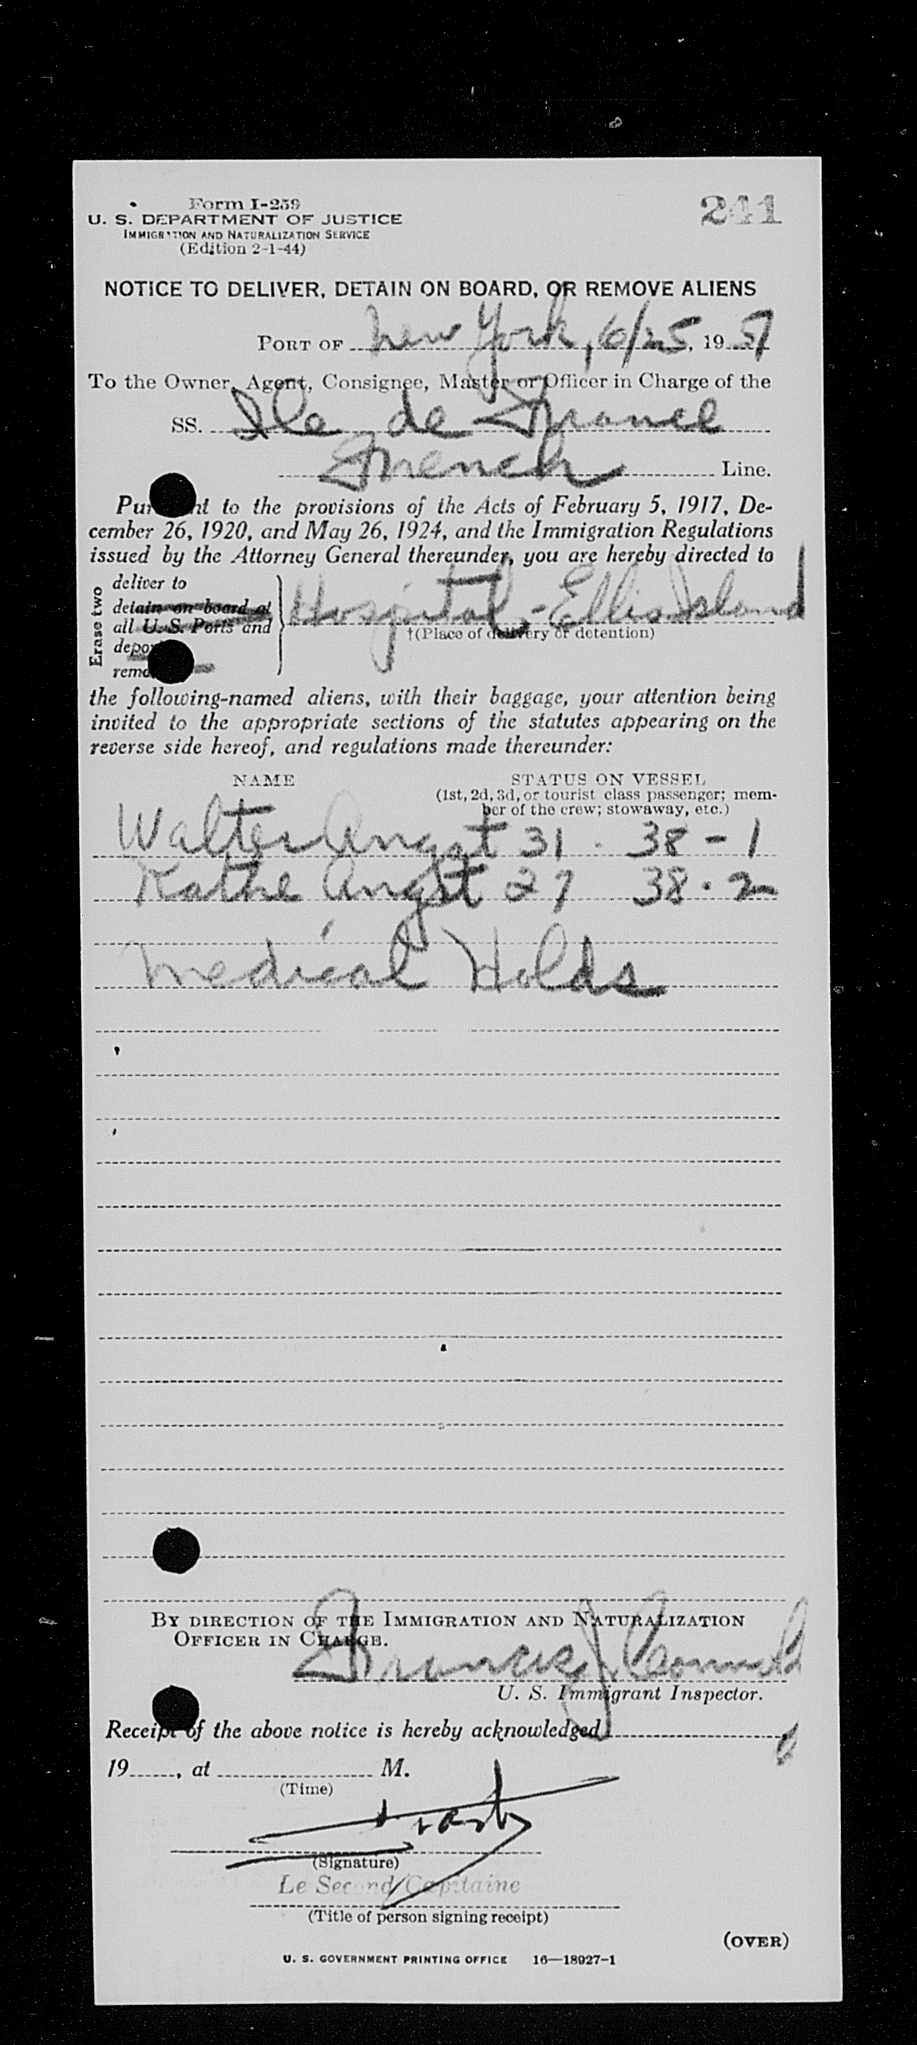 Form I-259
241
U. S. DEPARTMENT OF JUSTICE
IMMIGRATION AND NATURALIZATION SERVICE
(Edition 2-1-44)
NOTICE TO DELIVER, DETAIN ON BOARD, OR REMOVE ALIENS
PORT OF New York, 6/25, 1951
To the Owner, Agent, Consignee, Master or Officer in Charge of the
SS. Ile de France
French Line.
Pursuant to the provisions of the Acts of February 5, 1917, De-
cember 26, 1920, and May 26, 1924, and the Immigration Regulations
issued by the Attorney General thereunder, you are hereby directed to
Erase two
deliver to
detain on board at
all U. S. Ports and
depo
remo
Hospital - Ellis Island
†(Place of delivery or detention)
the following-named aliens, with their baggage, your attention being
invited to the appropriate sections of the statutes appearing on the
reverse side hereof, and regulations made thereunder:
NAME
STATUS ON VESSEL
(1st, 2d, 3d, or tourist class passenger; mem-
ber of the crew; stowaway, etc.)
Walter Angst 31 . 38 - 1
Kathe Angst 27 38 . 2
Medical Holds
BY DIRECTION OF THE IMMIGRATION AND NATURALIZATION
OFFICER IN CHARGE.
Francis J.
U. S. Immigrant Inspector.
Receipt of the above notice is hereby acknowledged
19, at M.
(Time)
(Signature)
Le Second Capitaine
(Title of person signing receipt)
(OVER)
U. S. GOVERNMENT PRINTING OFFICE 16—18927-1